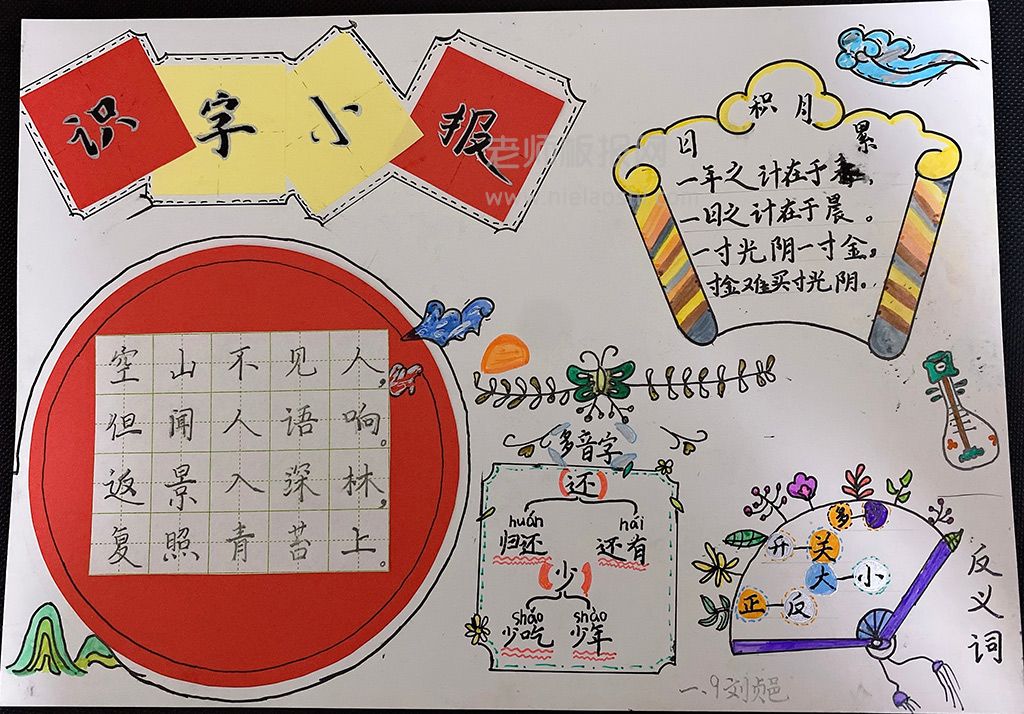 识字小报
老师板报网
积月
日 累
一年之计在于春,
一日之计在于晨。
一寸光阴一寸金,
寸金难买寸光阴。
空山不见人,
但闻人语响。
返景入深林,
复照青苔上。
多音字
还
huán hái
归还 还有
少
shǎo shào
少吃 少年
多
开—关
大—小
正—反
反义词
一.9刘贞邑